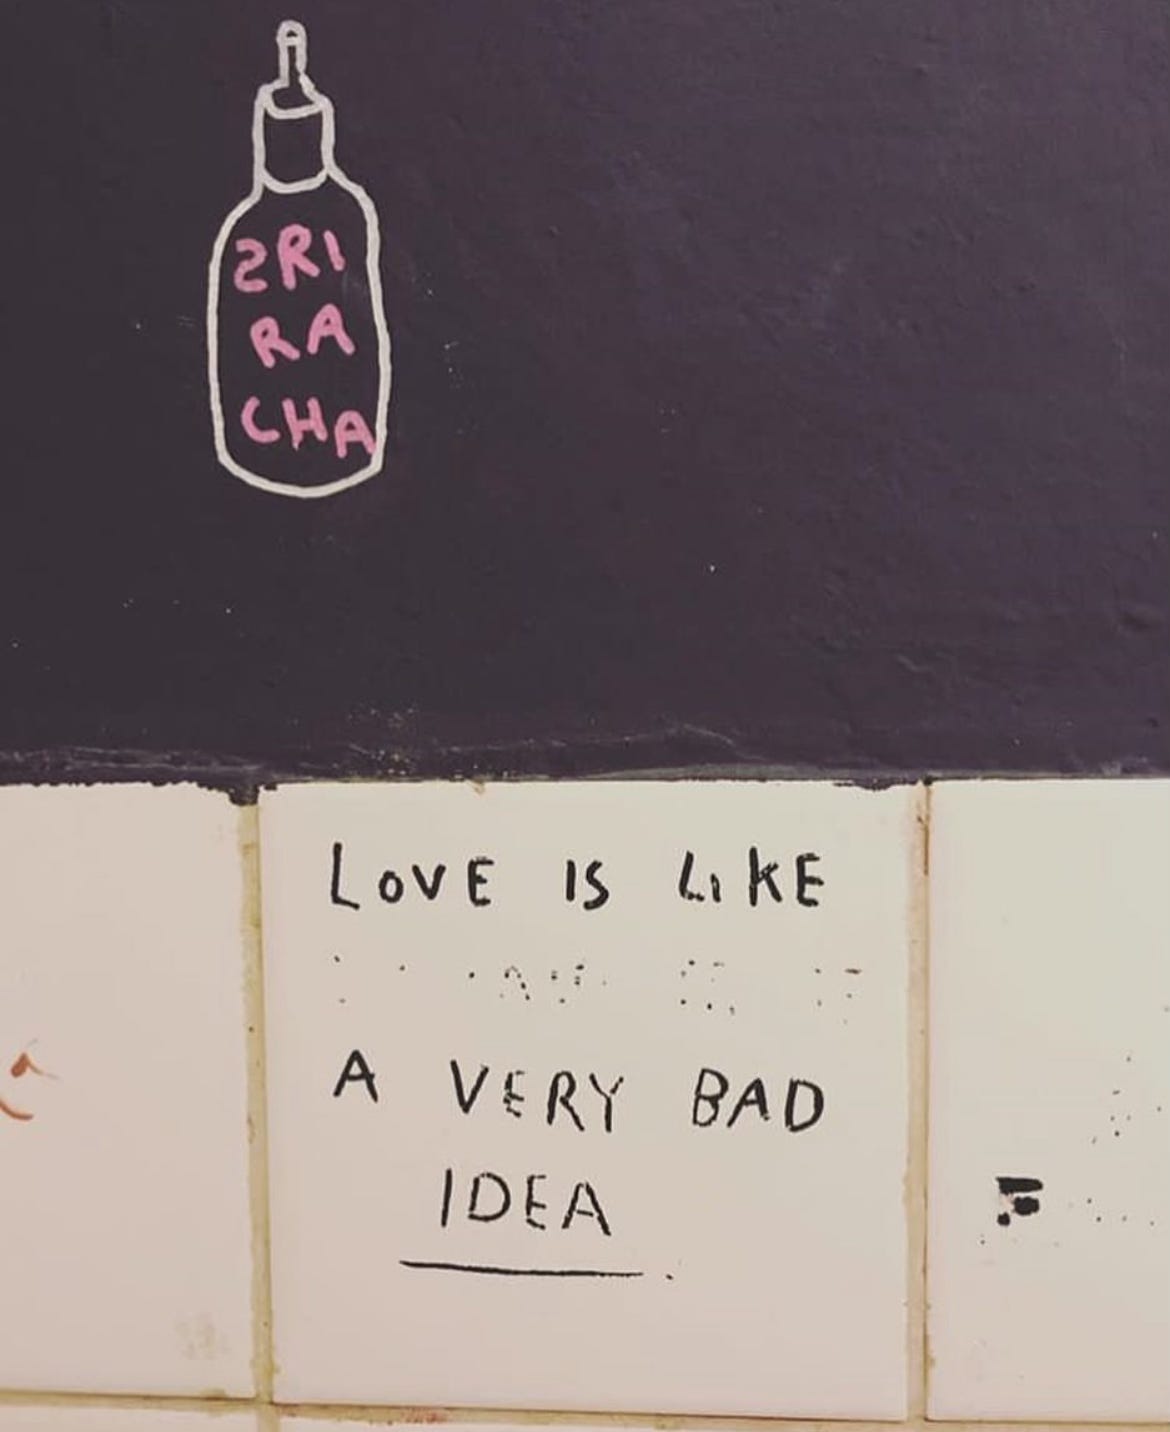 SRI
RA
CHA
LOVE IS LIKE
A VERY BAD
IDEA